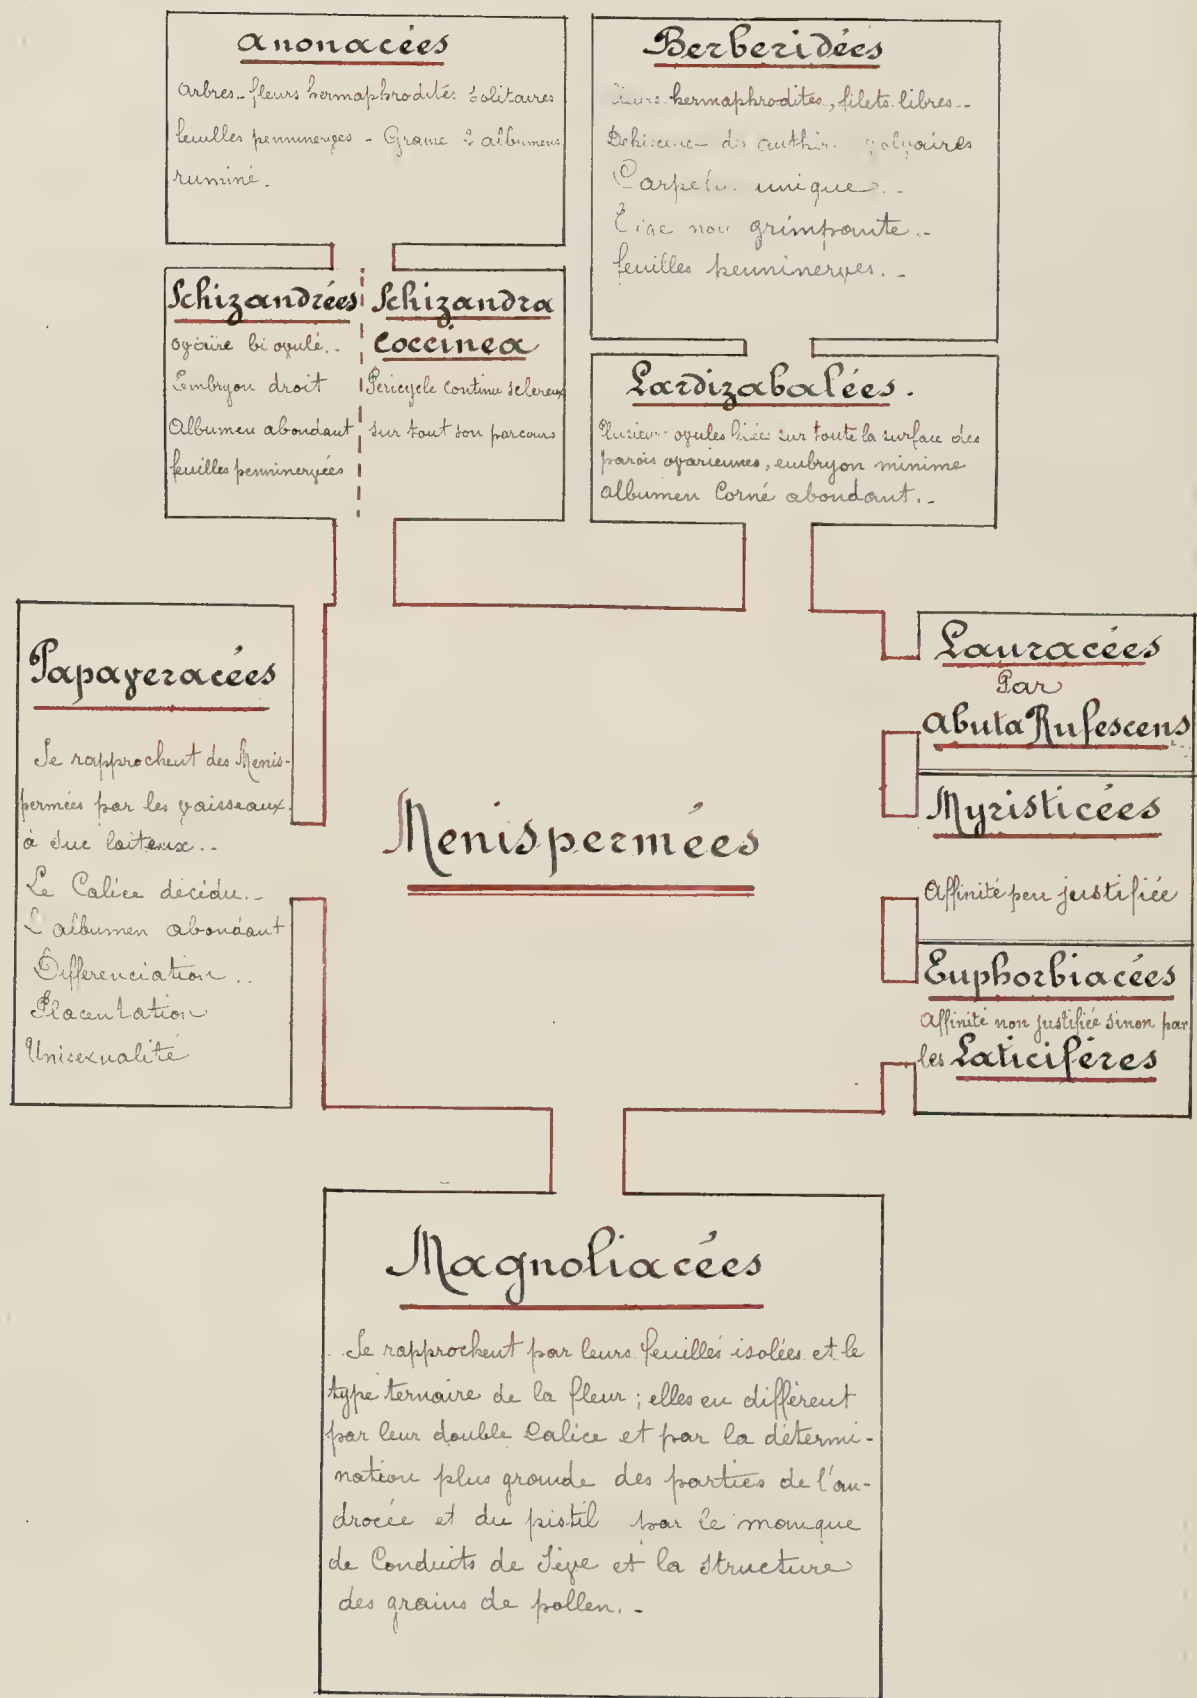 Anonacées
Arbres - fleurs hermaphrodites solitaires
feuilles penninerves - Graine à albumen
ruminé.
Berberidées
fleurs hermaphrodites, filets libres -
Dehiscence des anther. valvaires
Carpelle unique. -
Tige non grimpante. -
feuilles penninerves. -
Schizandrées
ovaire bi ovulé. -
Embryon droit
Albumen abondant
feuilles penninervées
Schizandra
Coccinea
Pericycle continu sclereux
sur tout son parcours
Lardizabalées.
Plusieurs ovules sur toute la surface des
parois ovariennes, embryon minime
albumen Corné abondant. -
Papaveracées
Se rapprochent des Menis-
permées par les vaisseaux
à suc laiteux. -
Le Calice décidu. -
L'albumen abondant
Différenciation . .
Placentation
Unisexualité
Menispermées
Lauracées
Par
Abuta Rufescens
Myristicées
Affinité peu justifiée
Euphorbiacées
Affinité non justifiée sinon par
les Laticifères
Magnoliacées
Se rapprochent par leurs feuilles isolées et le
type ternaire de la fleur ; elles en diffèrent
par leur double Calice et par la détermi-
nation plus grande des parties de l'an-
drocée et du pistil par le manque
de Conduits de Sève et la structure
des grains de pollen. -